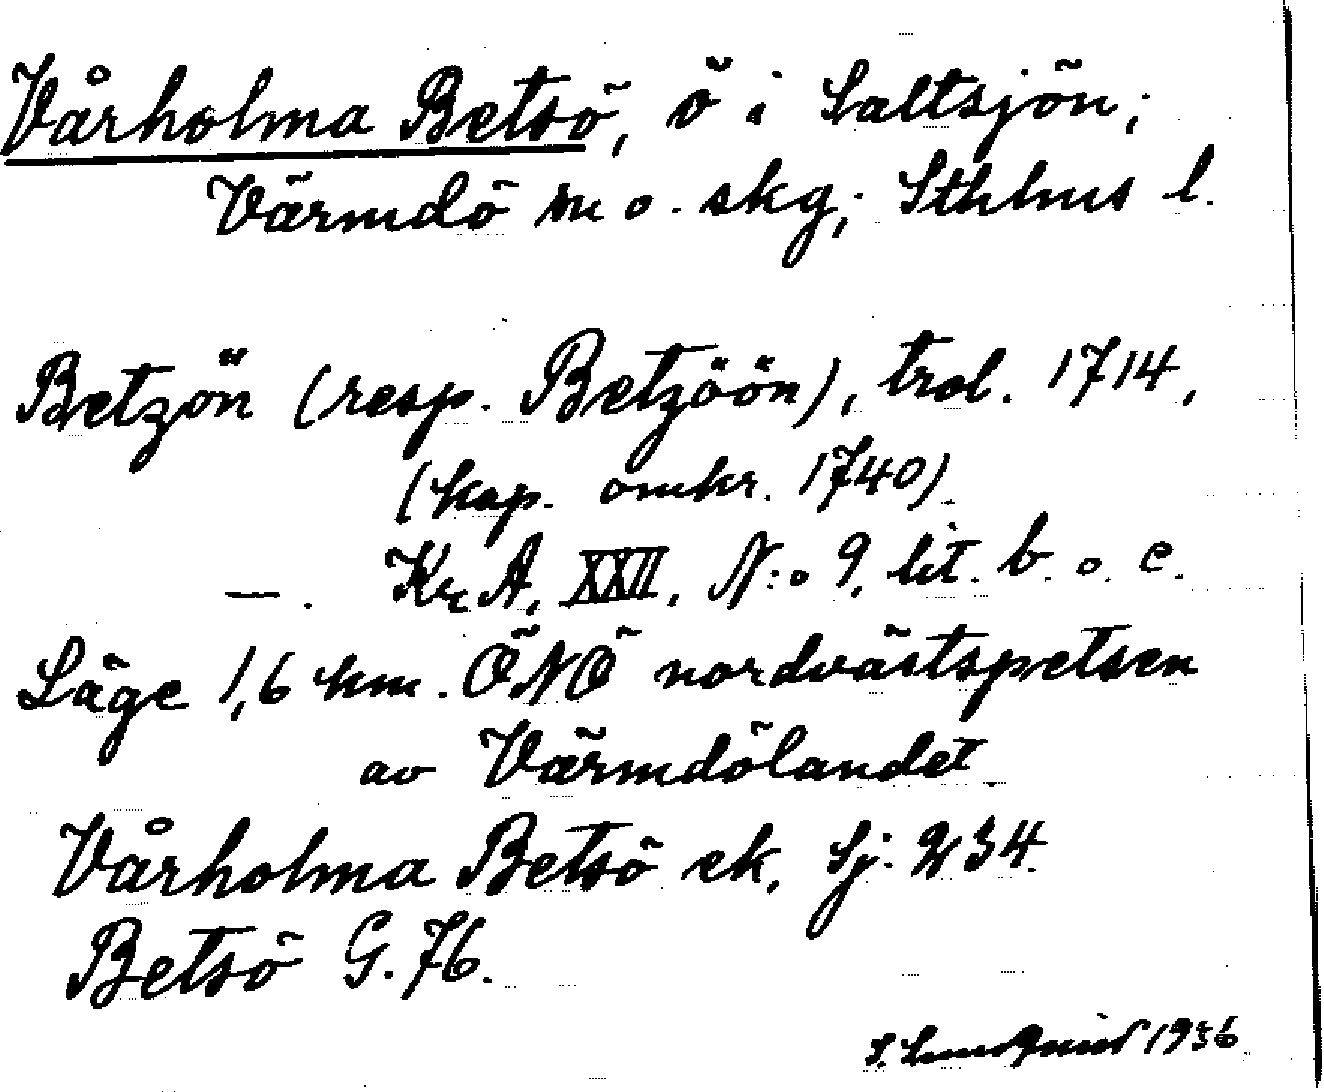 Vårholma Betsö, ö i Saltsjön;
Värmdö sn o. skg; Sthlms l.
Betzön (resp. Betzöön), trol. 1714,
(kop. omkr. 1740)
—. Kr. A, XXII, N:o 9, lit. b. o. c.
Läge 1,6 km. ÖNÖ nordvästspetsen
av Värmdölandet
Vårholma Betsö ek, Sj. 234.
Betsö G. 76.
S. Lundqvist 1936